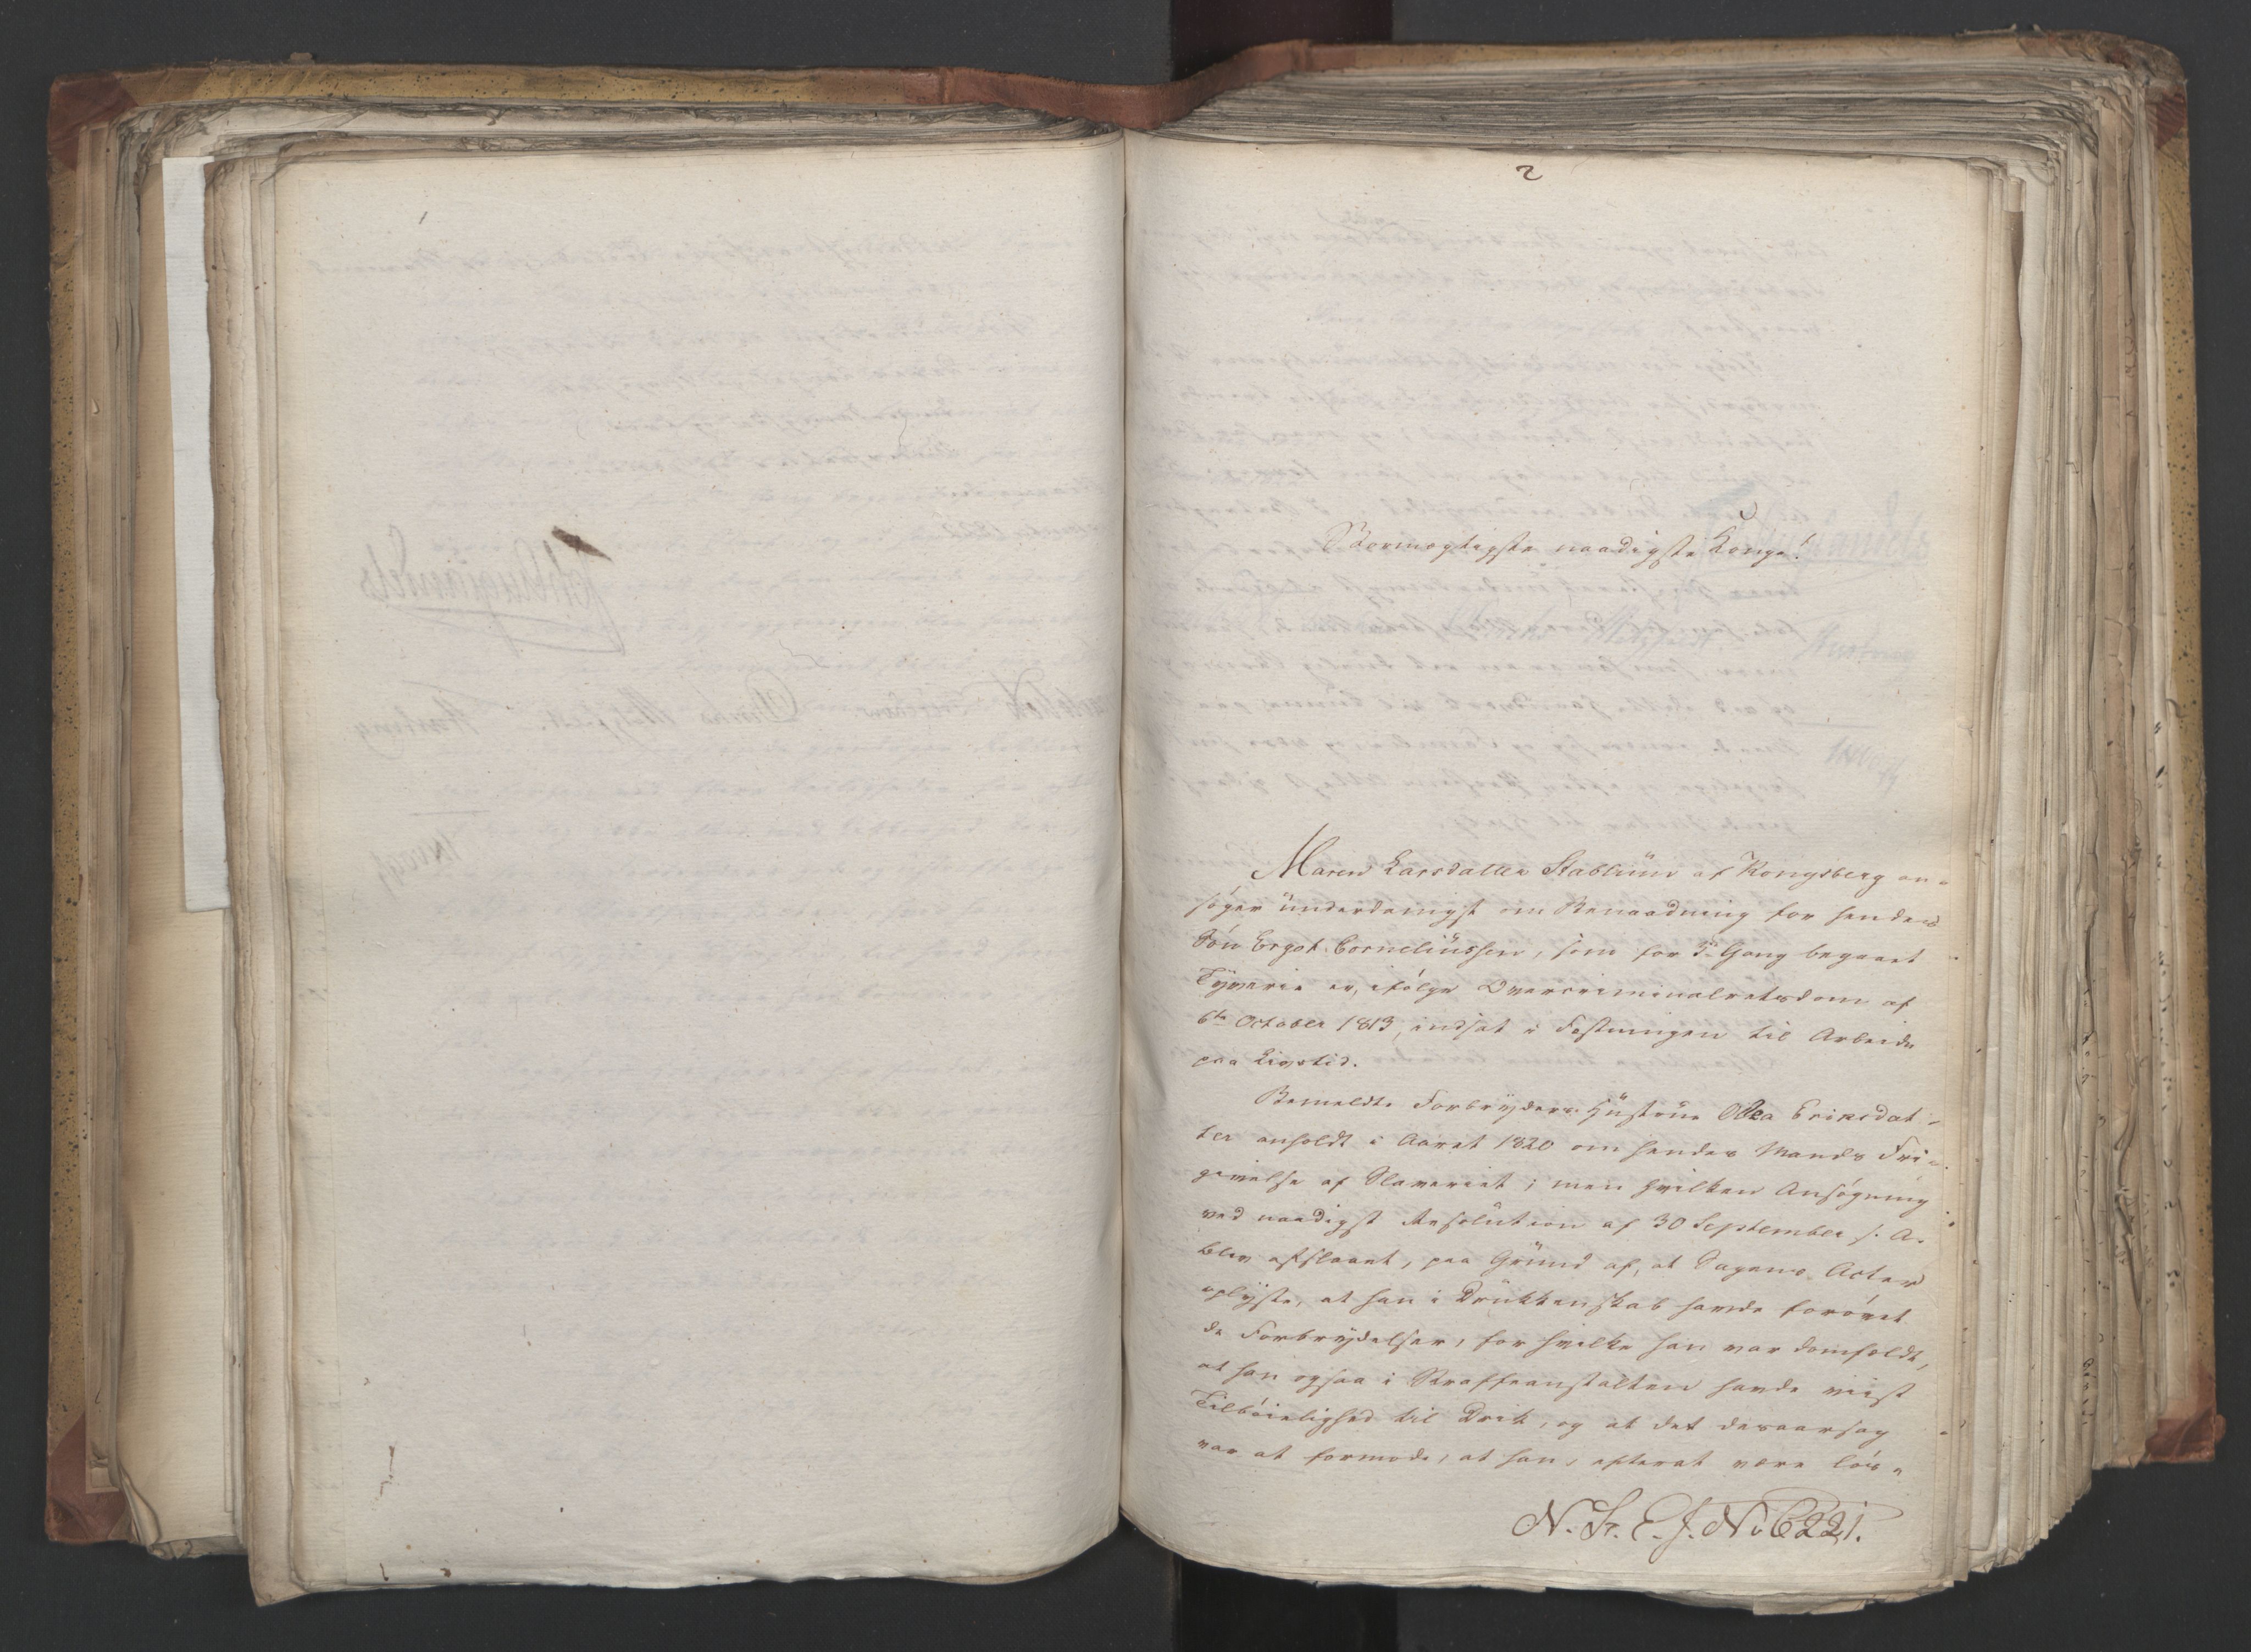 2
Stormægtigste naadigste Konge!
Maren Larsdatter Stablum af Kongsberg an-
søger underdanigst om Benaadning for hendes
Søn Ergot Corneliussen, som for 3de Gang begaaet
Tyverie er, ifølge Overcriminalretsdom af
6te October 1813, indsat i Fæstningen til Arbeide
paa Livstid.
Bemeldte Forbryders Hustrue Olea Eriksdat-
ter anholdt i Aaret 1820 om hendes Mands Fri-
givelse af Slaveriet; men hvilken Ansøgning
ved naadigst Resolution af 30 September s. A.
blev afslaaet, paa Grund af, at Sagens Acter
oplyste, at han i Drukkenskab havde forøvet
de Forbrydelser, for hvilke han var domfældt,
at han ogsaa i Straffeanstalten havde viist
Tilbøielighed til Drik, og at det desaarsag
var at formode, at han, efterat være løs-
N. Sr. C. J. No 6221.